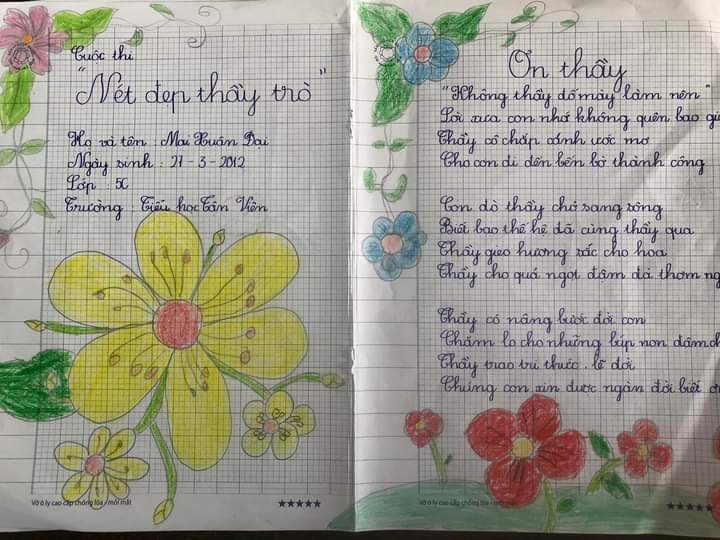 Cuộc thi
"Nét đẹp thầy trò"
Họ và tên : Mai Xuân Đại
Ngày sinh : 27 - 3 - 2012
Lớp : 5C
Trường : Tiểu học Tân Viên
Vở ô ly cao cấp chống lóa - mỏi mắt
★★★★★
Ơn thầy
"Không thầy đố mày làm nên"
Lời xưa con nhớ không quên bao
Thầy cô chắp cánh ước mơ
Cho con đi đến bến bờ thành công
Con đò thầy chở sang sông
Biết bao thế hệ đã cùng thầy qua
Thầy gieo hương sắc cho hoa
Thầy cho quả ngọt đậm đà thơm
Thầy cô nâng bước đời con
Chăm lo cho những lúp non
Thầy trao tri thức, lẽ đời
Chúng con xin được ngàn đời biết
Vở ô ly cao cấp chống lóa - mỏi
★★★★